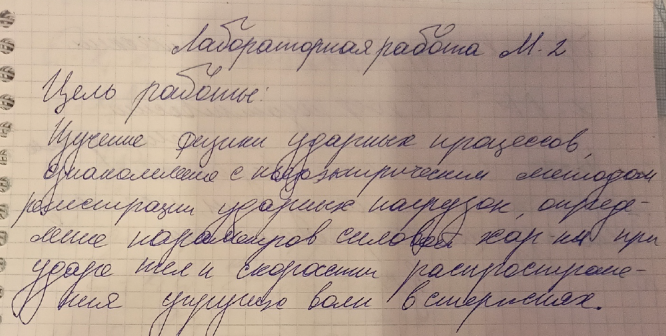 Лабораторная работа М-2
Цель работы:
Изучение физики ударных процессов,
ознакомление с методом
регистрации ударных нагрузок, опреде-
ление параметров силовой хар-ки при
ударе тел и скорости распростране-
ния упругих волн в стержнях.